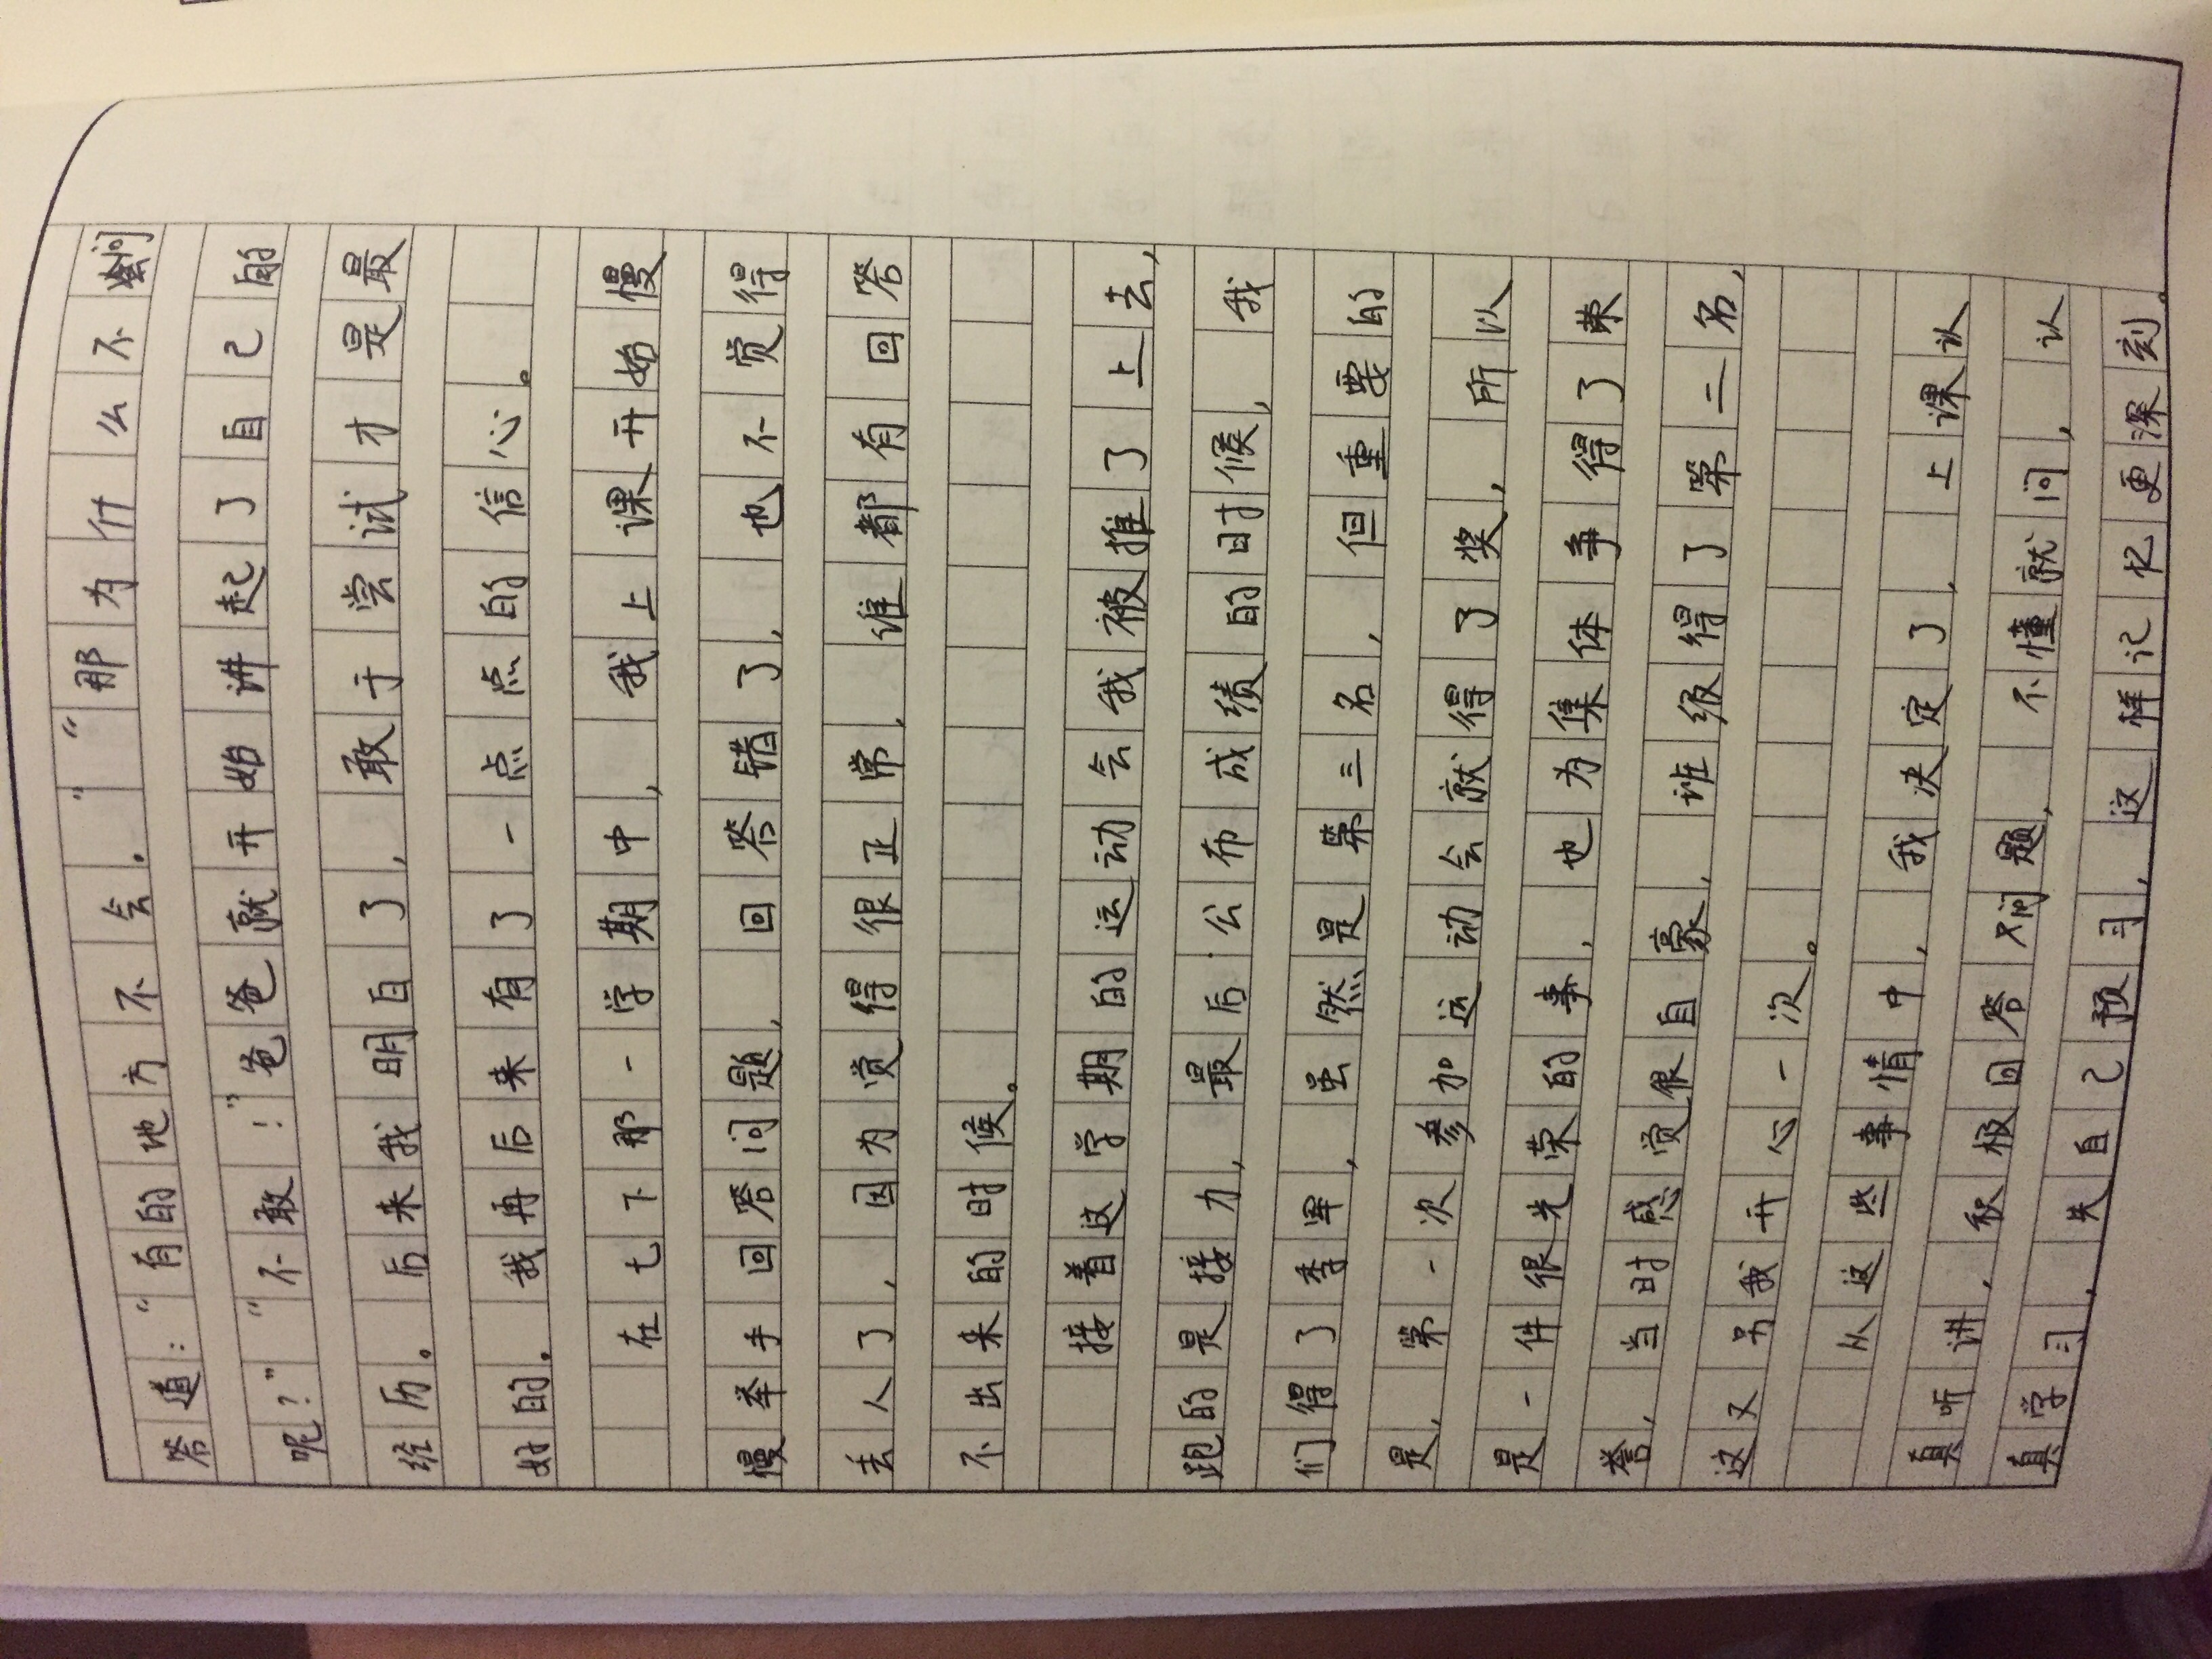 答道：“有的地方不会。”“那为什么不问
呢？”“不敢！”爸爸就开始讲起了自己的
经历。后来我明白了，敢于尝试才是最
好的。我再后来有了一点点的信心。
在七下那一学期中，我上课开始慢
慢举手回答问题，回答错了，也不觉得
丢人了，因为觉得很正常，谁都有回答
不出来的时候。
接着这学期的运动会我被推了上去，
跑的是接力，最后公布成绩的时候，我
们得了季军，虽然是第三名，但重要的
是，第一次参加运动会就得了奖，所以
是一件很光荣的事，也为集体争得了荣
誉，当时感觉很自豪，班级得了第二名，
这又另我开心一次。
从这些事情中，我决定了，上课认
真听讲，积极回答问题，不懂就问，认
真学习，失自己预习，这样记忆更深刻。